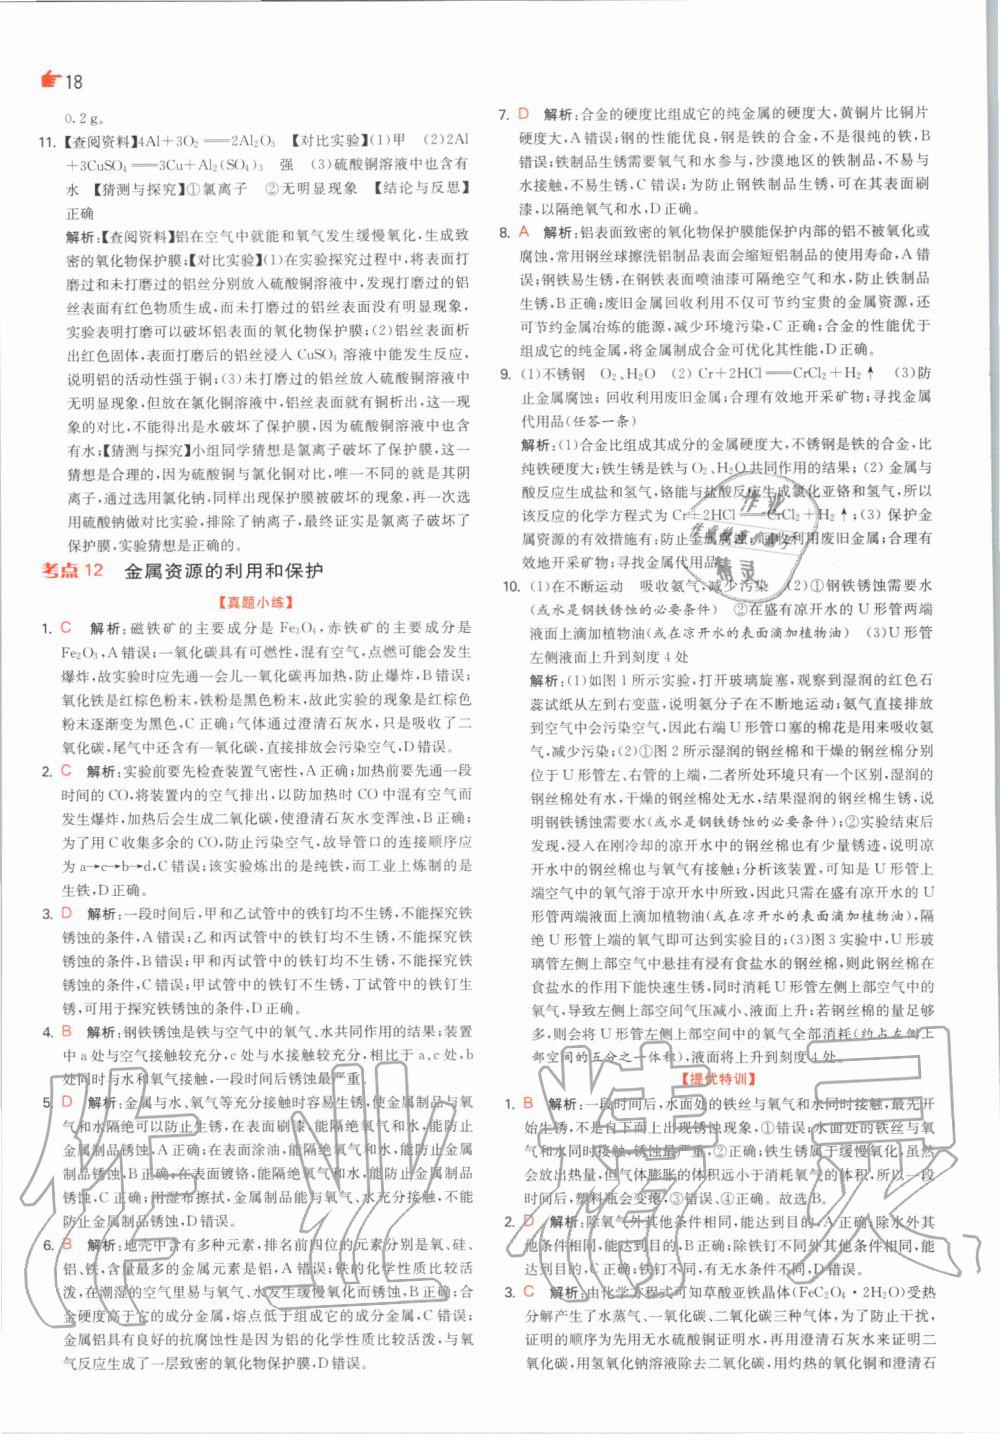 18
0.2g。
11.【查阅资料】4Al+3O₂══2Al₂O₃ 【对比实验】(1)甲 (2)2Al
+3CuSO₄══3Cu+Al₂(SO₄)₃ 强 (3)硫酸铜溶液中也含有
水 【猜测与探究】①氯离子 ②无明显现象 【结论与反思】
正确
解析:【查阅资料】铝在空气中就能和氧气发生缓慢氧化,生成致
密的氧化物保护膜;【对比实验】(1)在实验探究过程中,将表面打
磨过和未打磨过的铝丝分别放入硫酸铜溶液中,发现打磨过的
铝丝表面有红色物质生成,而未打磨过的铝丝表面没有明显现象,
实验表明打磨可以破坏铝表面的氧化物保护膜;(2)铝丝表面析
出红色固体,表面打磨后的铝丝浸入 CuSO₄ 溶液中能发生反应,
说明铝的活动性强于铜;(3)未打磨过的铝丝放入硫酸铜溶液中
无明显现象,但放在氯化铜溶液中,铝丝表面就有铜析出,这一现
象的对比,不能得出是水破坏了保护膜,因为硫酸铜溶液中也含
有水;【猜测与探究】小组同学猜想是氯离子破坏了保护膜,这一
猜想是合理的,因为硫酸铜与氯化铜对比,唯一不同的就是其阴
离子,通过氯化钠,同样出现保护膜被破坏的现象,再一次选用
硫酸钠做对比实验,排除了钠离子,最终证实是氯离子破坏了
保护膜,实验猜想是正确的。
考点12 金属资源的利用和保护
【真题小练】
1. C 解析:磁铁矿的主要成分是 Fe₃O₄,赤铁矿的主要成分是
Fe₂O₃,A错误;一氧化碳具有可燃性,混有空气,点燃可能会发生
爆炸,故实验时应先通一会儿一氧化碳再加热,防止爆炸,B错误;
氧化铁是红棕色粉末,铁粉是黑色粉末,故此实验的现象是红棕色
粉末逐渐变为黑色,C正确;气体通过澄清石灰水,只是吸收了二
氧化碳,尾气中还含有一氧化碳,直接排放会污染空气,D错误。
2. C 解析:实验前要先检查装置气密性,A正确;加热前要先通一段
时间的CO,将装置内的空气排出,以防加热时CO中混有空气而
发生爆炸,加热后会生成二氧化碳,使澄清石灰水变浑浊,B正确;
为了用C收集多余的CO,防止污染空气,故导管口的连接顺序应
为a→c→b→d,C错误;该实验炼出的是纯铁,而工业上炼制的是
生铁,D正确。
3. D 解析:一段时间后,甲和乙试管中的铁钉均不生锈,不能探究铁
锈蚀的条件,A错误;乙和丙试管中的铁钉均不生锈,不能探究铁锈
蚀的条件,B错误;甲和丙试管中的铁钉均不生锈,不能探究铁
锈蚀的条件,C错误;甲试管中的铁钉不生锈,丁试管中的铁钉生
锈,可用于探究铁锈蚀的条件,D正确。
4. B 解析:钢铁锈蚀是铁与空气中的氧气、水共同作用的结果;装置
中a处与空气接触较充分,c处与水接触较充分,相比于a、c处,b
处同时与水和氧气接触,一段时间后锈蚀最严重。
5. D 解析:金属与水、氧气等充分接触时容易生锈,保持金属制品表
面光洁可以防止生锈,在表面刷漆,能隔绝氧气和水,能防止金属
制品锈蚀,A正确;在表面涂油,能隔绝氧气和水,能防止金属制品
锈蚀,B正确;在表面镀铬,能隔绝氧气和水,能防止金属制品锈
蚀,C正确;用湿布擦拭,金属制品能与氧气、水充分接触,不能防
止金属制品锈蚀,D错误。
6. B 解析:地壳中含有多种元素,排名前四位的元素分别是氧、硅、
铝、铁,含量最多的金属元素是铝,A错误;铁的化学性质比较活
泼,在潮湿的空气里易与氧气、水发生缓慢氧化而生锈,B正确;合
金硬度高于它的成分金属,熔点低于组成它的成分金属,C错误;
金属铝具有良好的抗腐蚀性是因为铝的化学性质比较活泼,与氧
气反应生成了一层致密的氧化物保护膜,D错误。
7. D 解析:合金的硬度比组成它的纯金属的硬度大,黄铜片比铜片
硬度大,A错误;钢的性能优良,钢是铁的合金,不是很纯的铁,B
错误;铁制品生锈需要氧气和水参与,沙漠地区的铁制品,不易与
水接触,不易生锈,C错误;为防止钢铁制品生锈,可在其表面刷
漆,以隔绝氧气和水,D正确。
8. A 解析:铝表面致密的氧化物保护膜能保护内部的铝不被氧化或
腐蚀,常用钢丝球擦洗铝制品表面会缩短铝制品的使用寿命,A错
误;钢铁易生锈,在钢铁表面喷油漆可隔绝空气和水,防止铁制品
生锈,B正确;废旧金属回收利用不仅可节约宝贵的金属资源,还
可节约金属冶炼的能源,减少环境污染,C正确;合金的性能优于
组成它的纯金属,将金属制成合金可优化其性能,D正确。
9. (1)不锈钢 O₂、H₂O (2)Cr+2HCl══CrCl₂+H₂↑ (3)防
止金属腐蚀;回收利用废旧金属;合理有效地开采矿物;寻找金属
代用品(任答一条)
解析:(1)合金比组成其成分的金属硬度大,不锈钢是铁的合金,比
纯铁硬度大;铁生锈是铁与O₂、H₂O共同作用的结果;(2)金属与
酸反应生成盐和氢气,铬能与盐酸反应生成氯化亚铬和氢气,所以
该反应的化学方程式为Cr+2HCl══CrCl₂+H₂↑;(3)保护金
属资源的有效措施:防止金属腐蚀;回收利用废旧金属;合理有
效地开采矿物;寻找金属代用品等。
10. (1)在不断运动 吸收氨气,减少污染 (2)①钢铁锈蚀需要水
(或水是钢铁锈蚀的必要条件) ②在盛有凉开水的U形管两端
液面上滴加植物油(或在凉开水的表面滴加植物油) (3)U形管
左侧液面上升到刻度4处
解析:(1)如图1所示实验,打开玻璃旋塞,观察到湿润的红色石
蕊试纸从左到右变蓝,说明氨分子在不断地运动;氨气直接排放
到空气中会污染空气,因此右端U形管口塞的棉花是用来吸收氨
气,减少污染;(2)①图2所示湿润的钢丝棉和干燥的钢丝棉分别
位于U形管左、右管的上端,二者所处环境只有一个区别,湿润的
钢丝棉处有水,干燥的钢丝棉处无水,结果湿润的钢丝棉生锈,说
明钢铁锈蚀需要水(或水是钢铁锈蚀的必要条件);②实验结束后
发现,浸入在刚冷却的凉开水中的钢丝棉也出现少量锈迹,说明凉
开水中的钢丝棉也与氧气有接触;分析该装置,可知是U形管上
端空气中的氧气溶于凉开水中所致,因此只需在盛有凉开水的U
形管两端液面上滴加植物油(或在凉开水的表面滴加植物油),隔
绝U形管上端的氧气即可达到实验目的;(3)图3实验中,U形玻
璃管左侧上部空气中悬挂有浸有食盐水的钢丝棉,则此钢丝棉在
水的作用下能快速生锈,同时消耗U形管左侧上部空气中的
氧气,导致左侧上部空间气压减小,液面上升;若钢丝棉的量足够
多,则会将U形管左侧上部空间中的氧气全部消耗(约占左侧上
部空间的五分之一体积),液面将上升到刻度4处。
【提优特训】
1. B 解析:一段时间后,水面处的铁丝与氧气和水同时接触,最先开
始生锈,不是自下而上出现锈蚀现象,①错误;水面处的铁丝与氧
气和水同时接触,锈蚀最严重,②正确;铁生锈属于缓慢氧化,虽然
会放出热量,但气体膨胀的体积远小于消耗氧气的体积,所以一段
时间后,塑料瓶会变瘪,③错误、④正确。故选B。
2. D 解析:除氧气外其他条件相同,能达到目的,A正确;除水外其
他条件相同,能达到目的,B正确;除铁钉不同外其他条件相同,能
达到目的,C正确;铁钉不同,有无水条件不同,D错误。
3. C 解析:由化学方程式可知草酸亚铁晶体(FeC₂O₄·2H₂O)受热
分解产生了水蒸气、一氧化碳、二氧化碳三种气体,为了防止干扰,
证明的顺序为先用无水硫酸铜证明水,再用澄清石灰水来证明二
氧化碳,用氢氧化钠溶液除去二氧化碳,用灼热的氧化铜和澄清石
作业精灵
作业
精灵